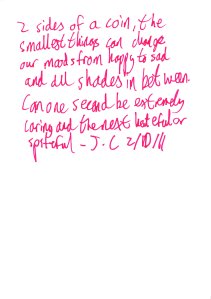 2 sides of a coin, the
smallest things can change
our moods from happy to sad
and all shades in between.
Can one second be extremely
caring and the next hateful or
spiteful - J.C 2/10/11